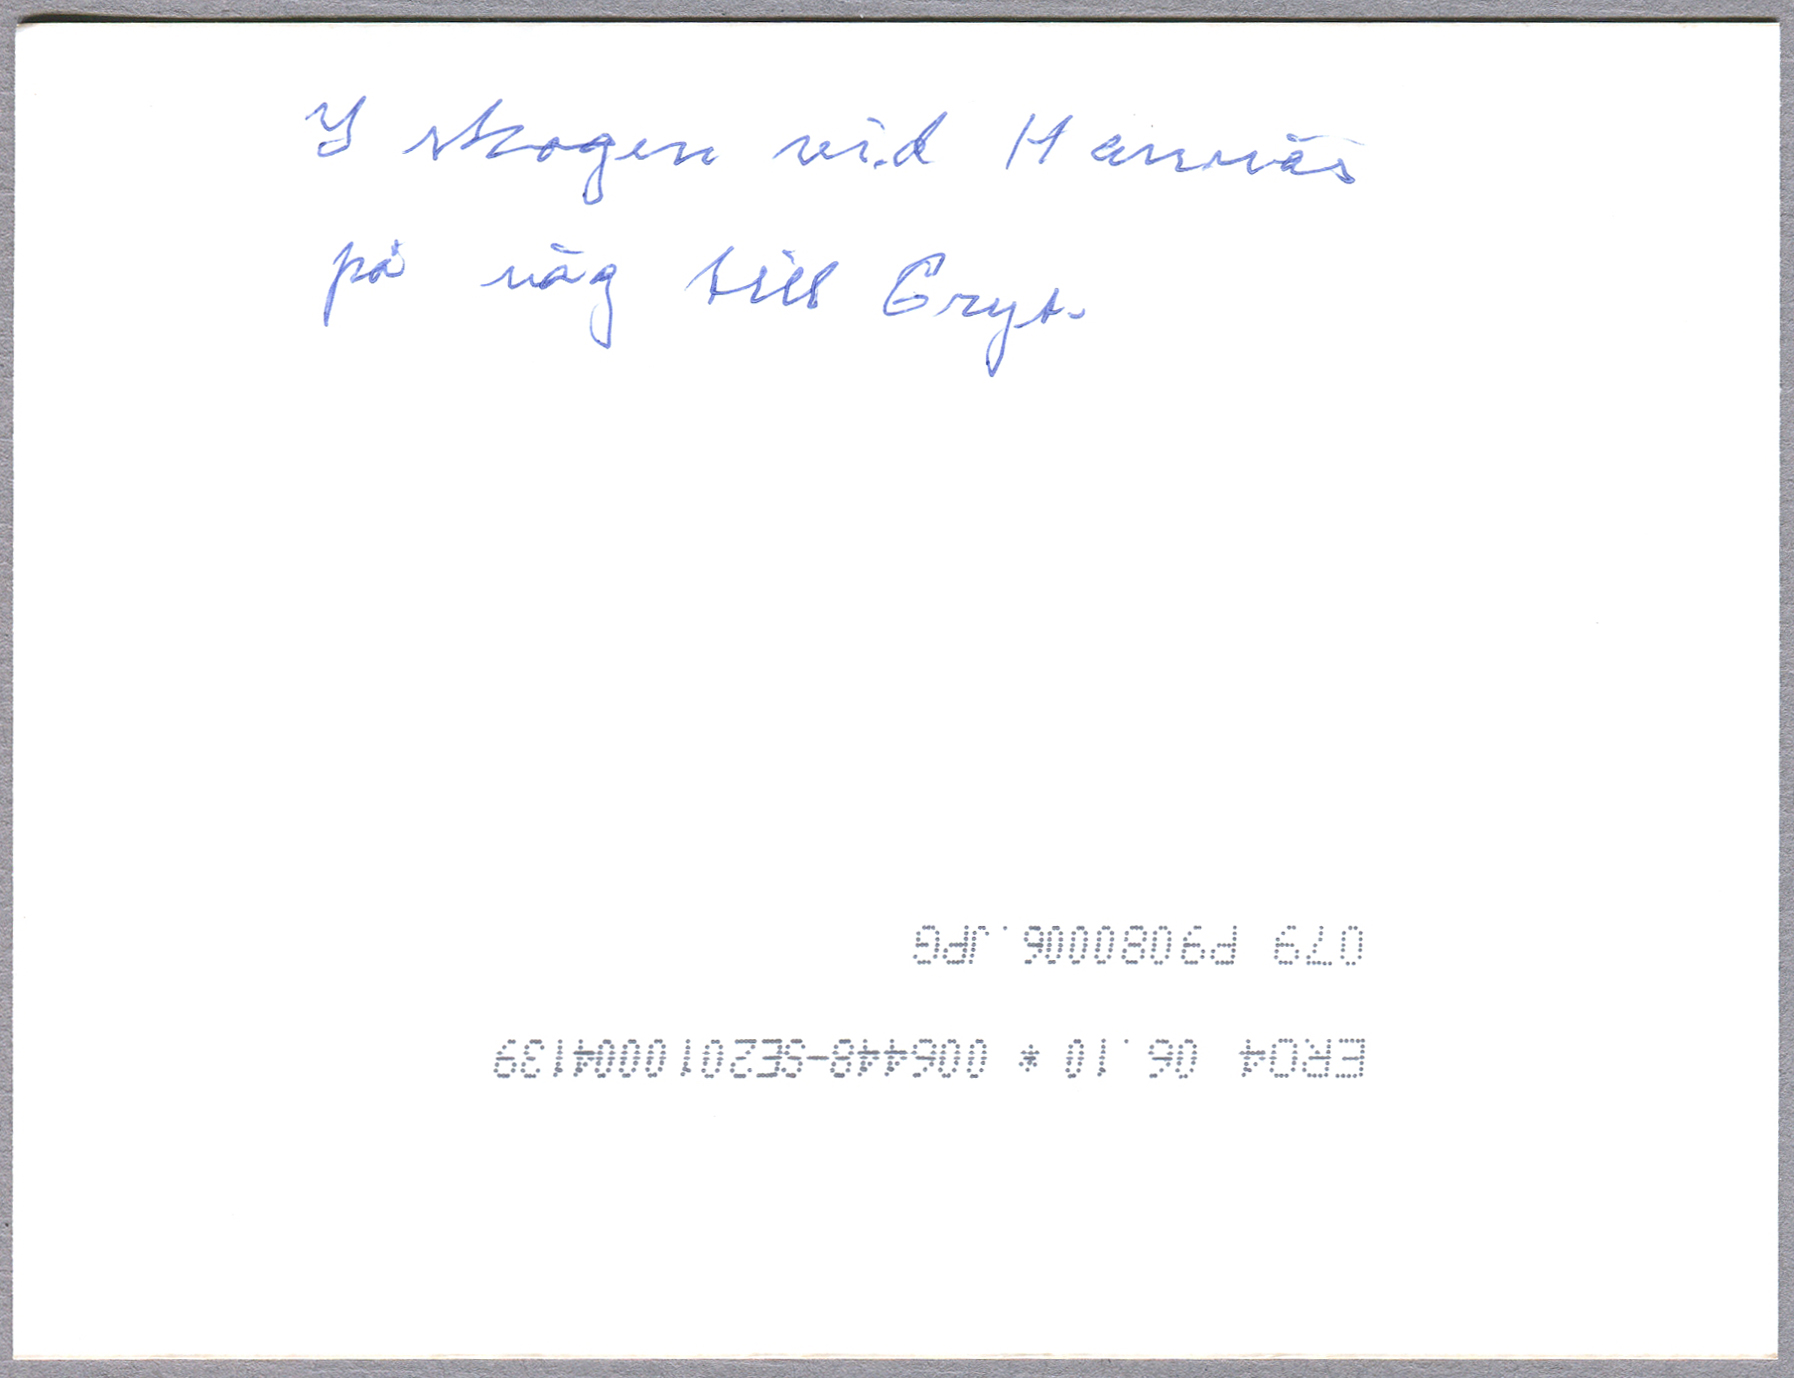 I skogen vid Hannäs
på väg till Gryt.
ER04 06.10 * 006448-SE2010004139
079 P9080006.JPG